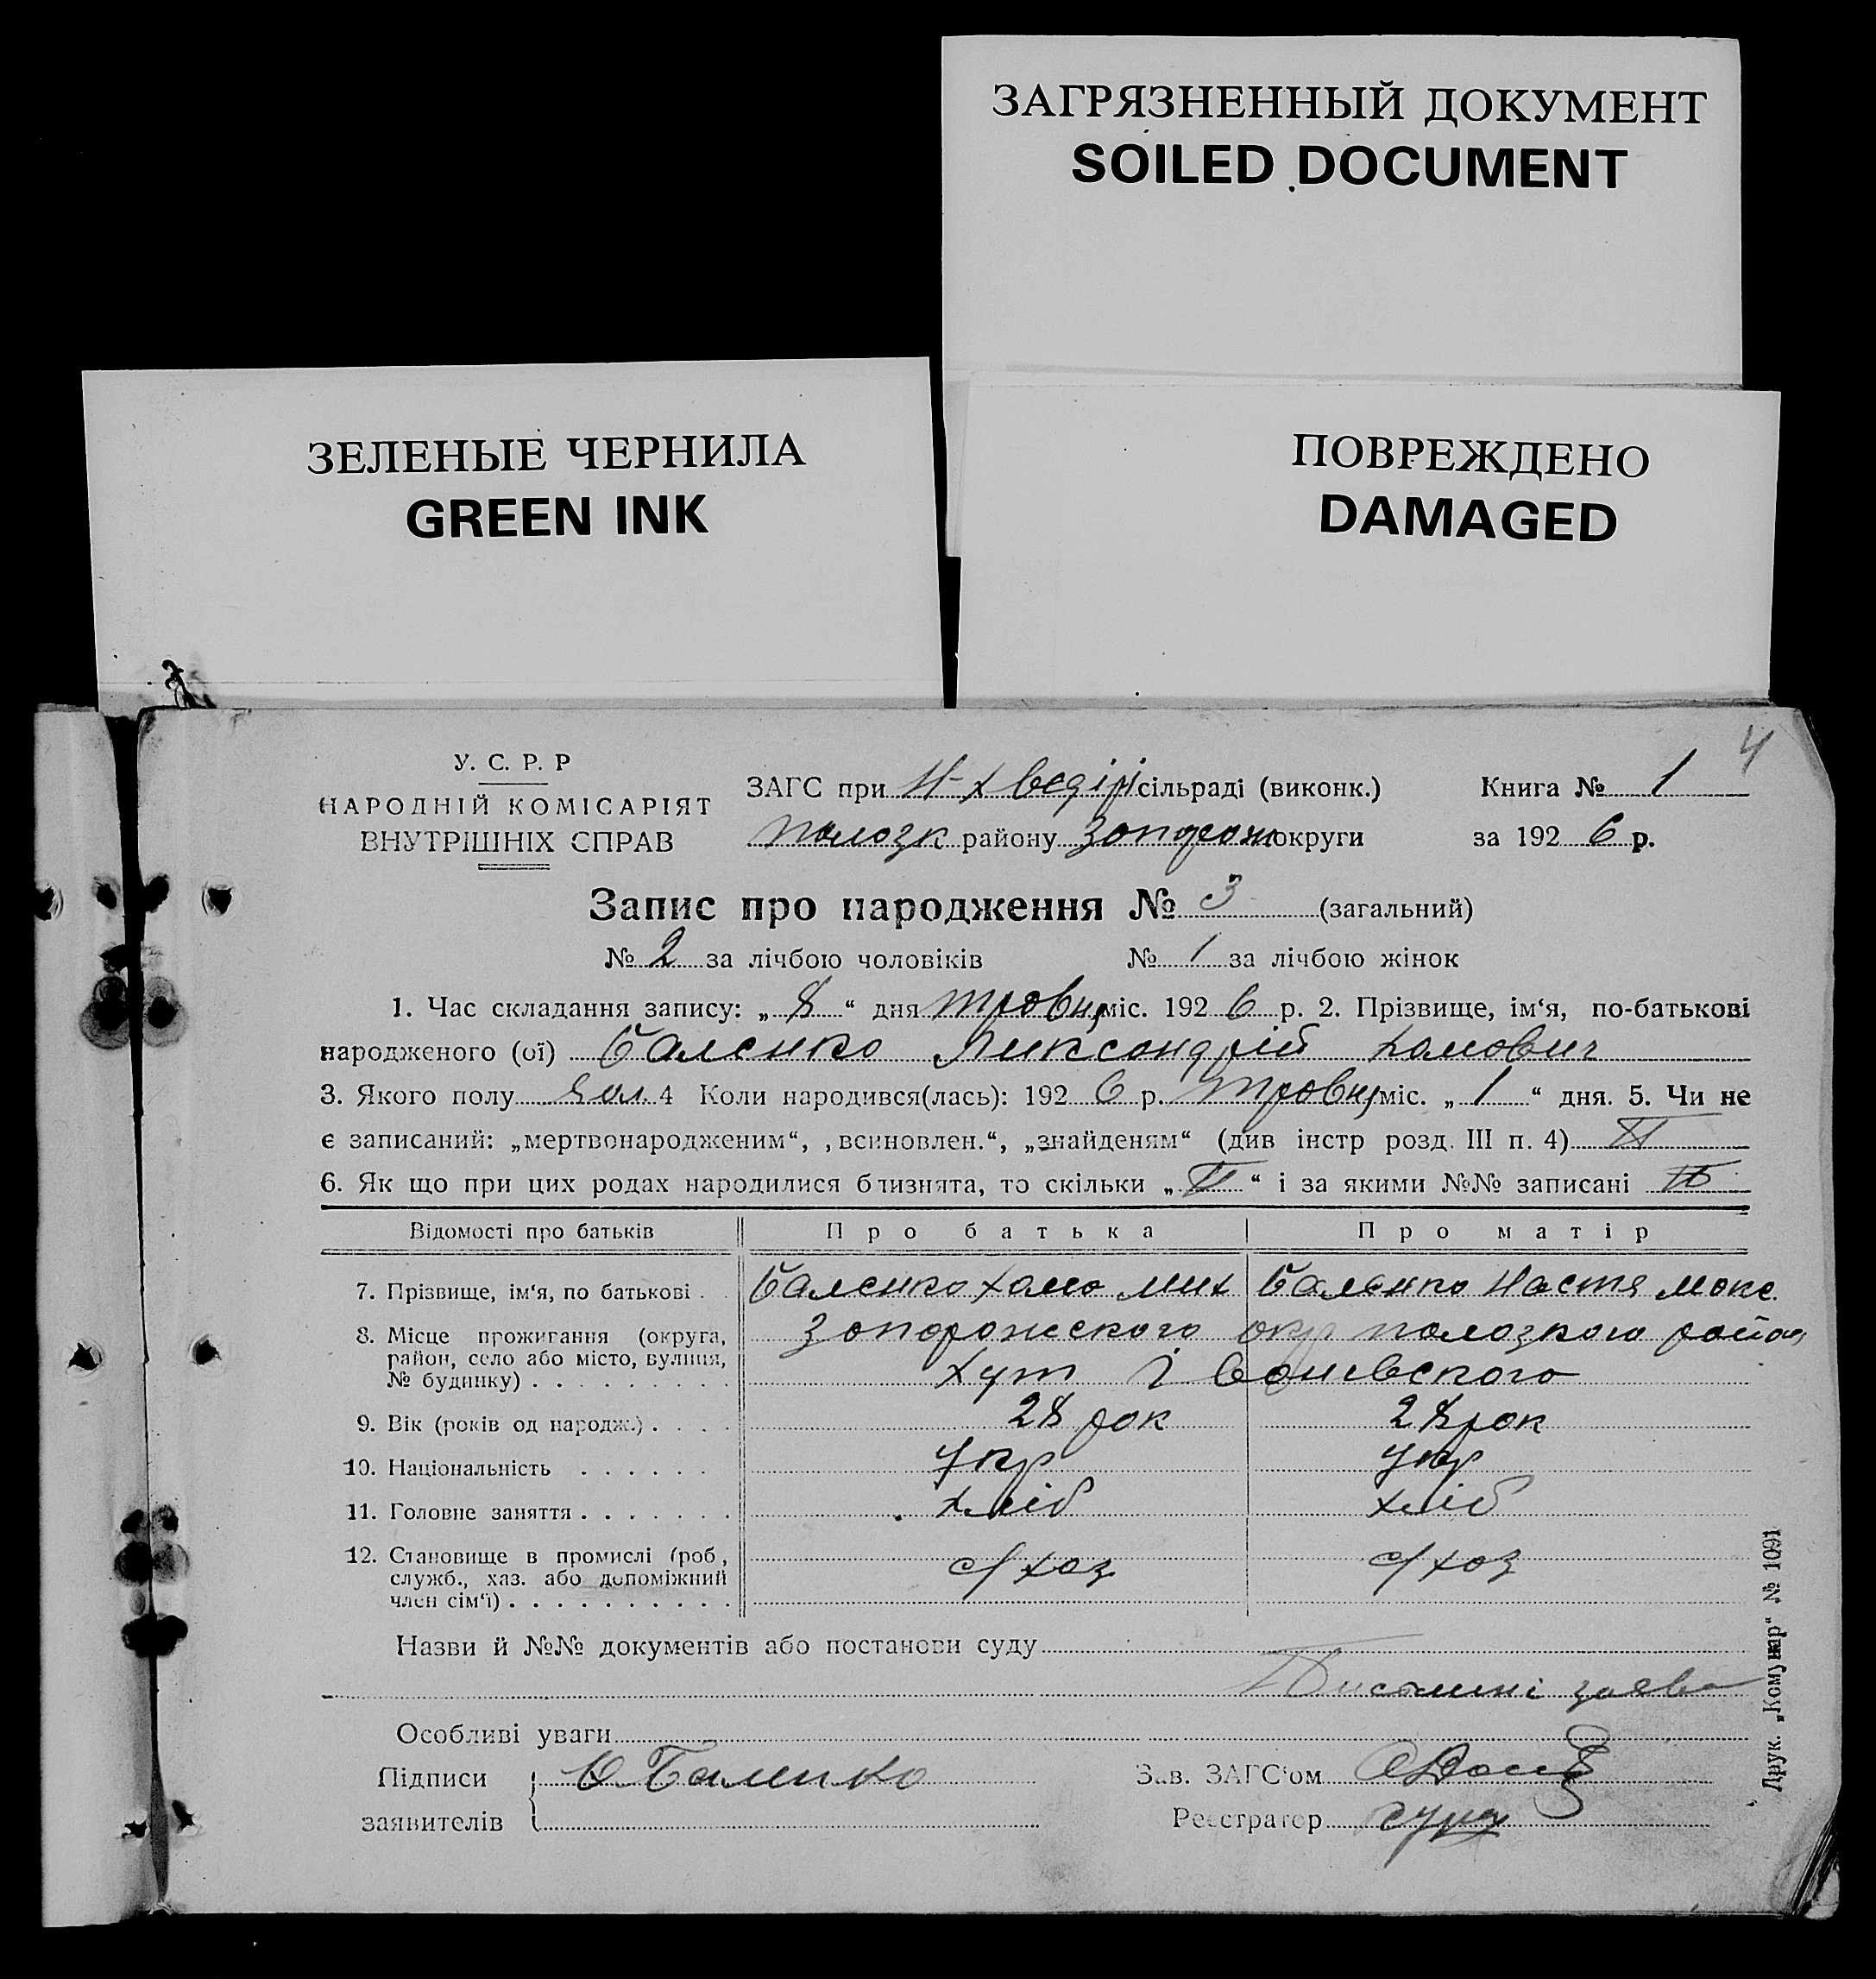 ЗАГРЯЗНЕННЫЙ ДОКУМЕНТ
SOILED DOCUMENT
ЗЕЛЕНЫЕ ЧЕРНИЛА
GREEN INK
ПОВРЕЖДЕНО
DAMAGED
4
У. С. Р. Р
НАРОДНІЙ КОМІСАРІЯТ
ВНУТРІШНІХ СПРАВ
ЗАГС при сільраді (виконк.)
Книга № 1
Пологк району Запорож округи
за 1926 р.
Запис про народження № 3 (загальний)
№ 2 за лічбою чоловіків № 1 за лічбою жінок
1. Час складання запису: „ 8 “ дня травня міс. 1926 р. 2. Прізвище, ім‘я, по-батькові
народженого (ої) Баленко
3. Якого полу чол. 4 Коли народився(лась): 1926 р. травня міс. „ 1 “ дня. 5. Чи не
є записаний: „мертвонародженим“, „всиновлен.“, „знайденям“ (див інстр розд. III п. 4)
6. Як що при цих родах народилися близнята, то скільки „ “ і за якими №№ записані
Відомості про батьків Про батька Про матір
7. Прізвище, ім‘я, по батькові . . Баленко Хамо Мих Баленко Настя Макс.
8. Місце проживання (округа, Запорожского окр Пологкого район
район, село або місто, вулиця,
№ будинку) . . . . . . . . . хут
9. Вік (років од народж.) . . . . 28 рок 28 рок
10. Національність . . . . . . Укр Укр
11. Головне заняття . . . . . . . хліб хліб
12. Становище в промислі (роб., с/хоз с/хоз
служб., хаз. або допоміжний
член сім‘ї) . . . . . . . . . .
Назви й №№ документів або постанови суду
заява
Особливі уваги
Підписи Баленко
заявителів
Зав. ЗАГС‘ом
Реєстратор
Друк. „Комунар“ № 1091